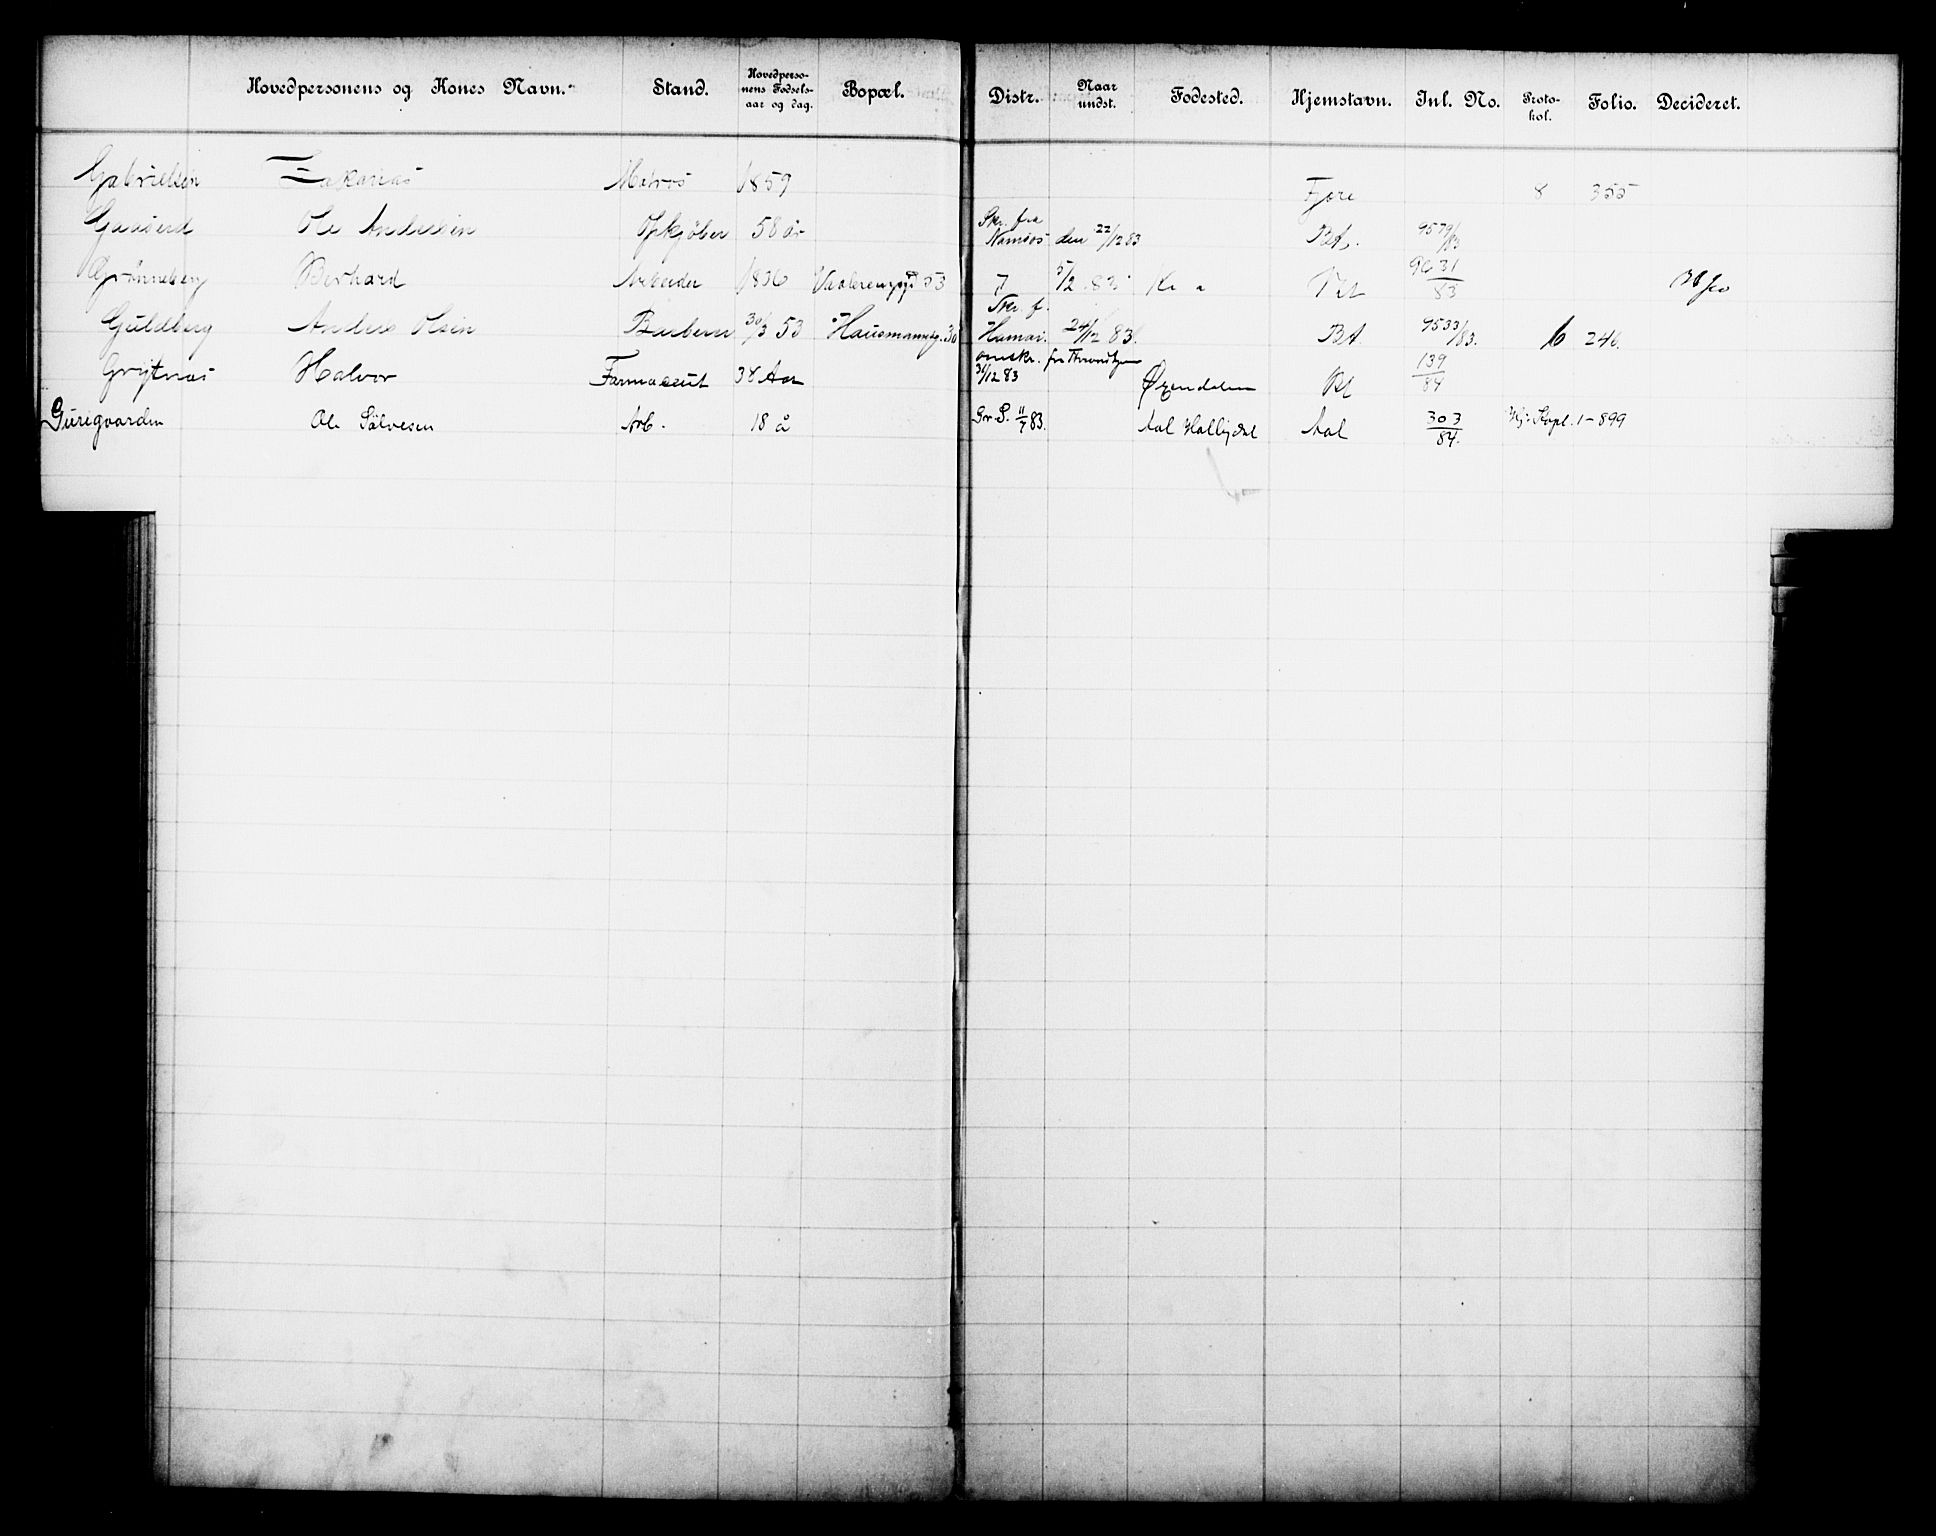 Hovedpersonens og Kones Navn. Stand. Hovedperso-nens Fødsels-aar og dag. Bopæl. Distr. Naar undst. Fødested. Hjemstavn. Inl. No. Proto-kol. Folio. Decideret.
Gabrielsen Zakarias Matros 1859 Fjære 8 355
Gaaserd Ole Andersen Opkjöber 58 år Skr. fra Namsos den 22/12 83 BA. 9579/83
Grønneberg Berhard Arbeider 1836 Vaalerenggd 53 7 5/2 83 Kr a 9631/83
Guldberg Anders Olsen Barberer 30/3 53 Hausmannsg. 30 Skr. f. Hamar. 24/12 83. BA. 9533/83. 6 246.
Grytnæs Halvor Farmaceut 38 Aar omskr. fra Throndhjem 31/12 83 Øxendalen 139/84
Guregaarden Ole Sölvesen Arb. 18 å Gr. S. 11/7 83. Aal Hallingdal Aal 303/84. Hj: Kopl. 1-899